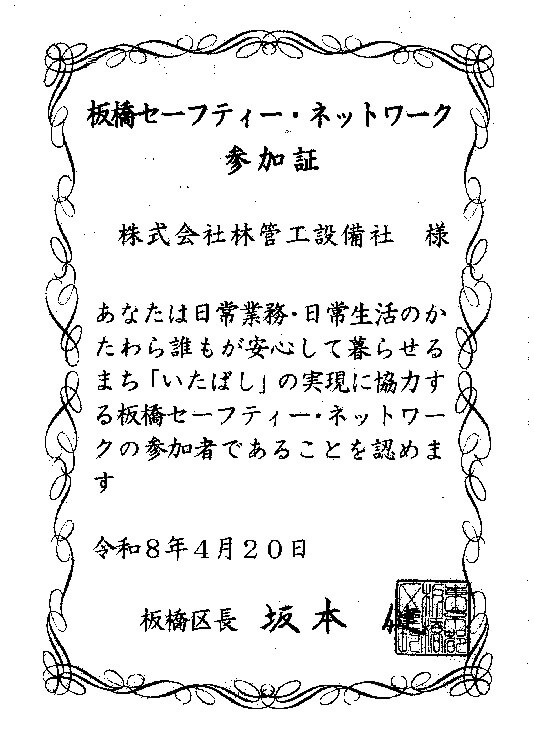 板橋セーフティー・ネットワーク
参加証
株式会社林管工設備社 様
あなたは日常業務・日常生活のか
たわら誰もが安心して暮らせる
まち「いたばし」の実現に協力す
る板橋セーフティー・ネットワー
クの参加者であることを認めま
す
令和８年４月２０日
板橋区長 坂本 健